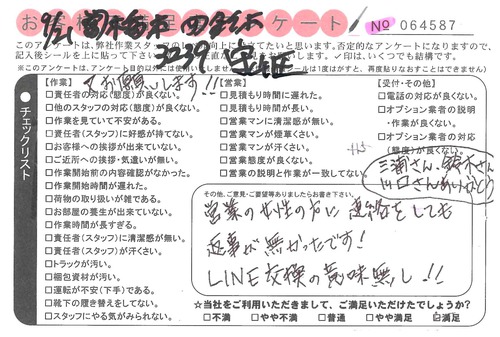 お客様満足アンケート! No 064587
このアンケートは、弊社作業スタッフの
否定的なアンケートになりますので、
※このアンケートは、
1度はがすと、再度貼りなおすことはできません)
チェックリスト
【作業】
お願いします!!
□責任者の対応(態度)が良くない。
□他のスタッフの対応(態度)が良くない。
□作業を見ていて不安がある。
□責任者(スタッフ)に好感が持てない。
□お客様への挨拶が出来ていない。
□ご近所への挨拶・気遣いが無い。
□作業開始前の内容確認がなかった。
□作業開始時間が遅れた。
□荷物の取り扱いが雑である。
□お部屋の養生が出来ていない。
□作業時間が長すぎる。
□責任者(スタッフ)に清潔感が無い。
□責任者(スタッフ)が汗くさい。
□トラックが汚い。
□梱包資材が汚い。
□運転が不安(下手)である。
□靴下の履き替えをしてない。
□スタッフにやる気がみられない。
【営業】
□見積もり時間に遅れた。
□見積もり時間が長い。
□営業マンに清潔感が無い。
□営業マンが煙草くさい。
□営業マンが汗くさい。
□営業態度が良くない。
□営業の説明と作業が一致してない。
【受付・その他】
□電話の対応が良くない。
□オプション業者の説明
・作業が良くない。
□オプション業者の対応
(態度)が良くない。
三浦さん、鈴木さん
川口さんありがとう
その他、ご意見・ご要望等ありましたらお書き下さい。
営業の女性の方に連絡をしても
返事が無かったです!
LINE交換の意味無し!!
☆当社をご利用いただきまして、ご満足いただけたでしょうか?
□不満 □やや不満 □普通 □やや満足 ☑満足